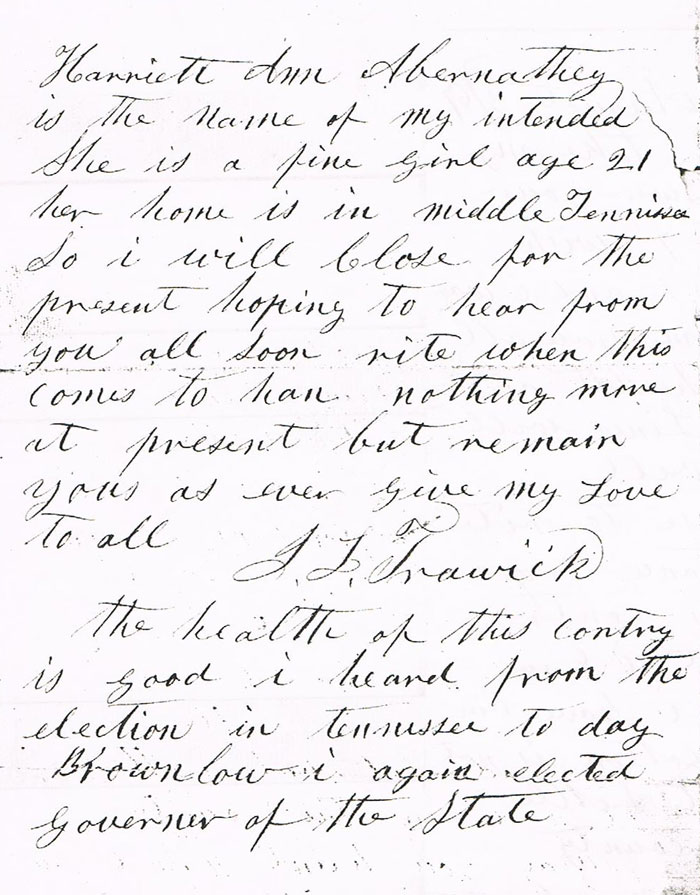 Harriett Ann Abernathey
is the name of my intended
She is a fine girl age 21
her home is in middle Tennissee
So i will Close for the
present hoping to hear from
you all soon rite when this
comes to han nothing more
at present but remain
yous as ever give my Love
to all
J. L. Trawick
the health of this contry
is good i heard from the
election in tennessee to day
Brownlow i again elected
governer of the State